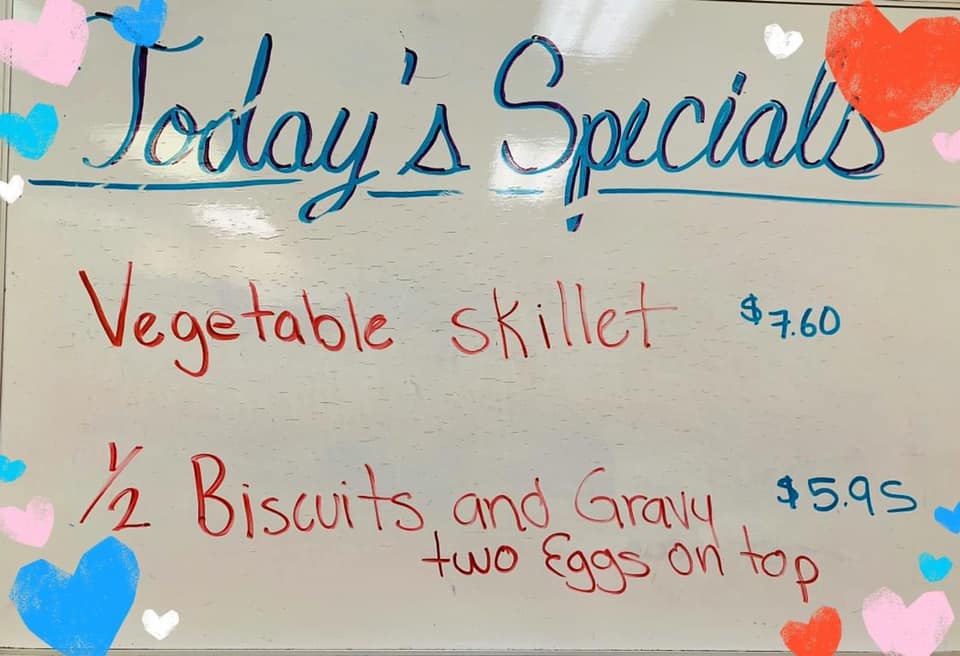 Today's Specials
Vegetable skillet $7.60
1/2 Biscuits and Gravy $5.95
two Eggs on top